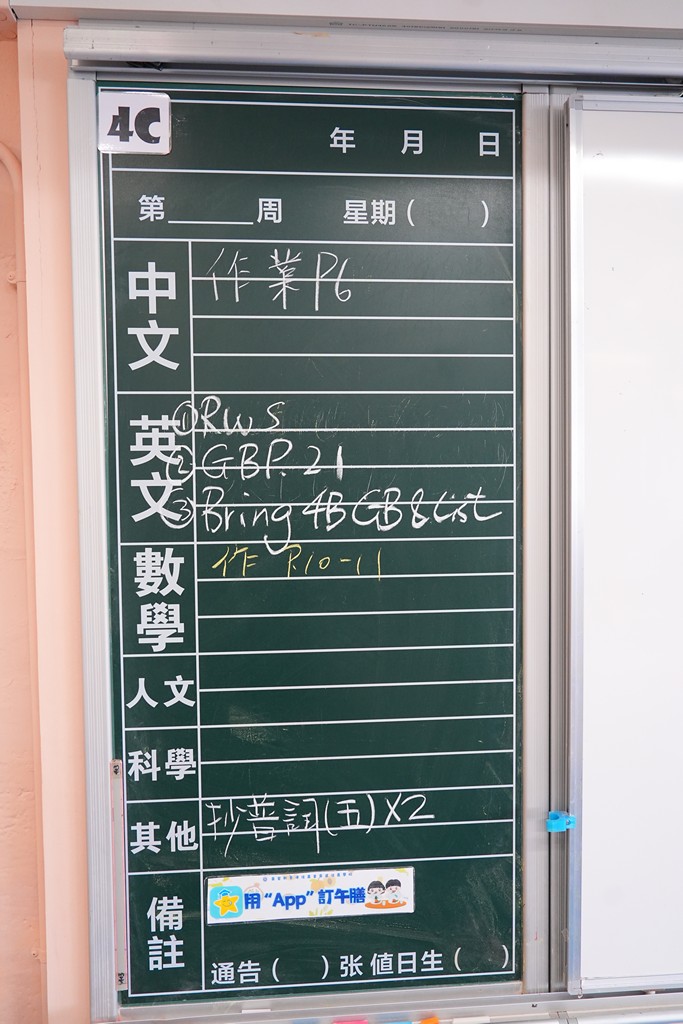 4C
年 月 日
第______周 星期( )
中文
作業 P6
英文
①RWS
②GB P.21
③Bring 4B GB & List
數學
作 P.10-11
人文
科學
其他
抄普詞(五)X2
備註
用“App”訂午膳
通告( )张 值日生( )